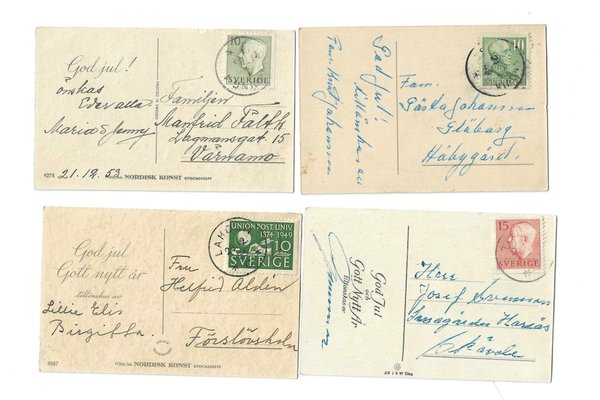 God jul!
önskas
Eder alla
Maria & Jenny
21.12.53
Familjen
Manfrid Fälth
Lagmansgat. 15
Värnamo
10
SVERIGE
9278
FÖRLAG NORDISK KONST STOCKHOLM
God Jul!
tillönskas av
Fam. Knut Johansson
Fam.
Gösta Johansson
Slåbarg
Håbygård.
10
SVERIGE
God jul
Gott nytt år
tillönskas av
Lillie Elis
Birgitta.
Fru
Helfrid Aldén
Förslövsholm
LAHO
UNION POST. UNIV
1874 1949
10
SVERIGE
9897
FÖRLAG NORDISK KONST STOCKHOLM
God Jul
och
Gott Nytt År
tillönskas av
Herr
Josef Svensson
15
SVERIGE